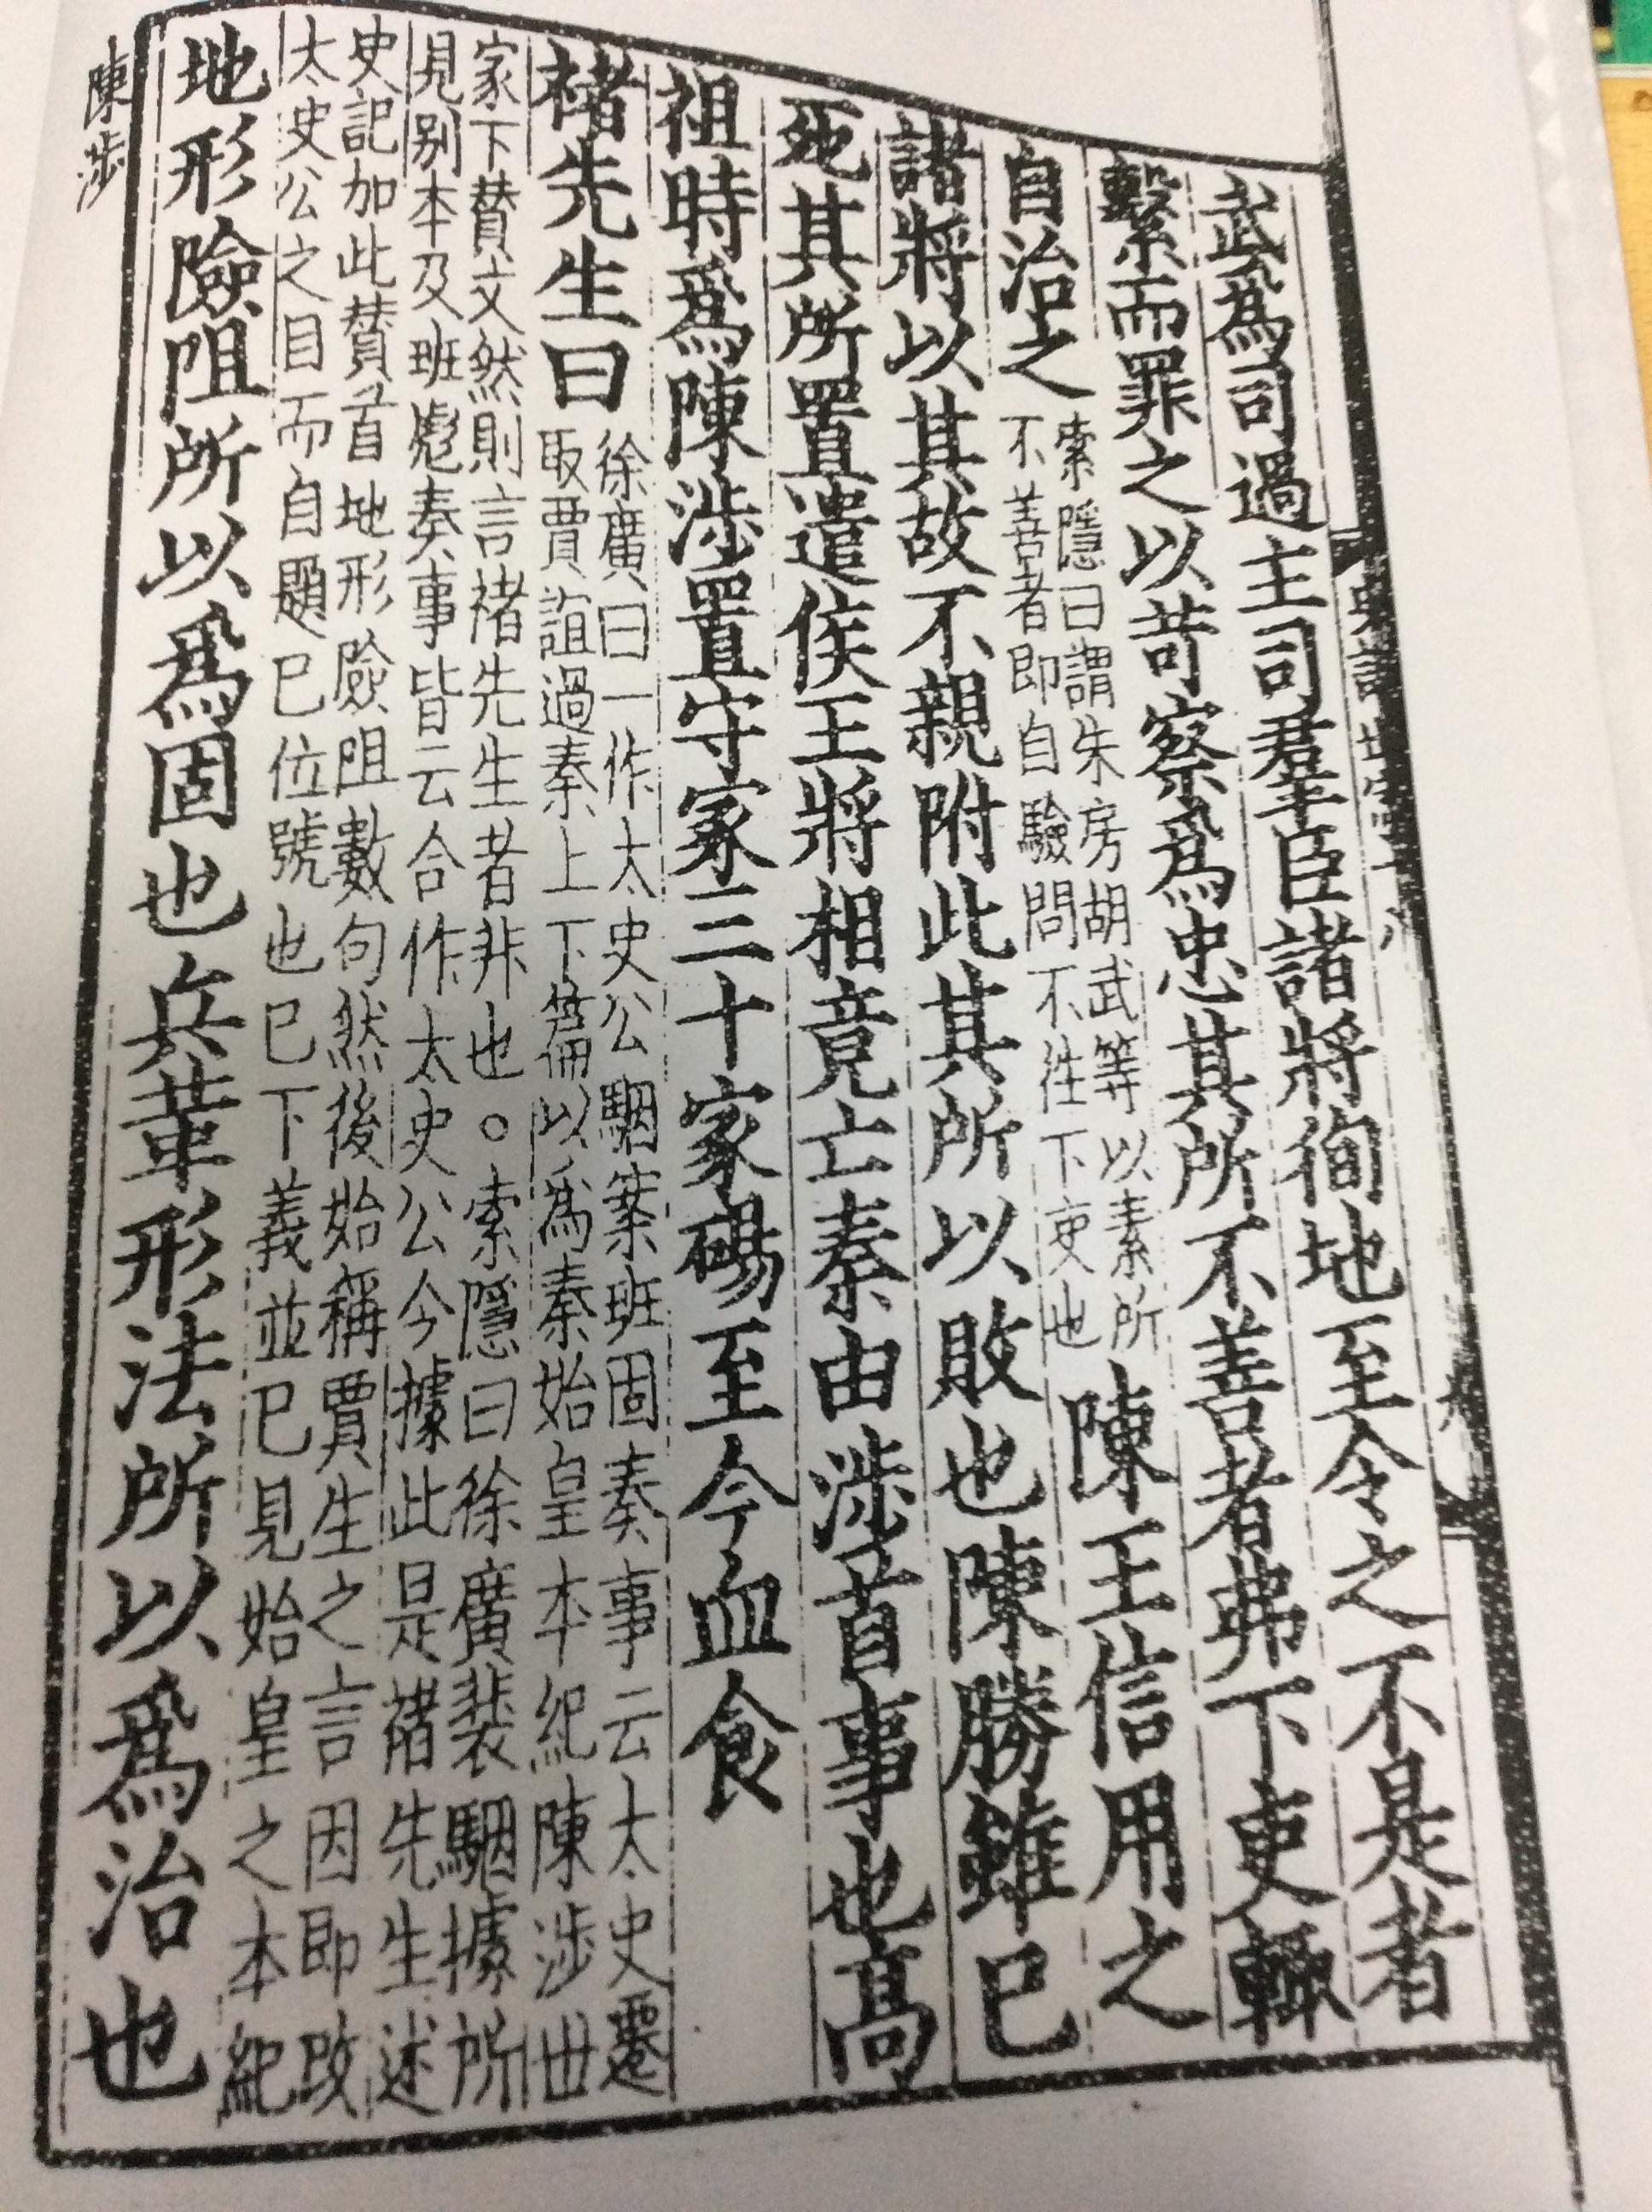 武爲司過主司羣臣諸將徇地至令之不是者
繫而罪之以苛察爲忠其所不善者弗下吏輒
自治之
索隱曰謂朱房胡武等以素所
不善者即自驗問不往下吏也
陳王信用之
諸將以其故不親附此其所以敗也陳勝雖已
死其所置遣侯王將相竟亡秦由涉首事也高
祖時爲陳涉置守冢三十家碭至今血食
褚先生曰
徐廣曰一作太史公駰案班固奏事云太史遷
取賈誼過秦上下篇以爲秦始皇本紀陳涉世
家下賛文然則言褚先生者非也○索隱曰徐廣裴駰據所
見别本及班彪奏事皆云合作太史公今據此是褚先生述
史記加此賛首地形險阻數句然後始稱賈生之言因即改
太史公之目而自題已位號也已下義並已見始皇之本紀
地形險阻所以爲固也兵革形法所以爲治也
陳涉